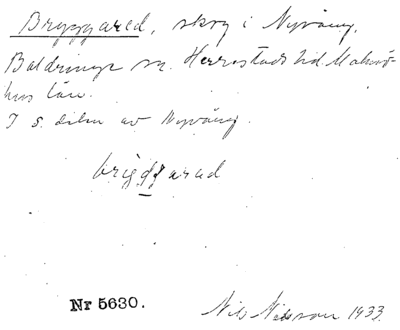 Bryggared, skog i Nyvång,
Baldringe sn. Herrestads hd Malmö-
hus län.
I s. delen av Nyvång.
Nr 5630.
Nils Nilsson 1933.